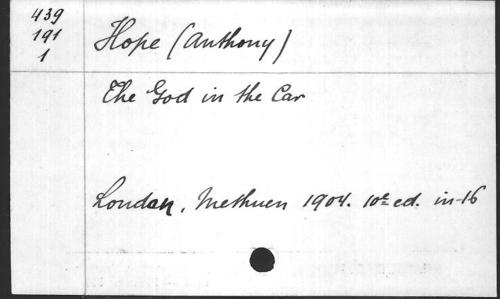 439
191
1
Hope (Anthony)
The God in the Car
London, Methuen 1904. 10e ed. in-16